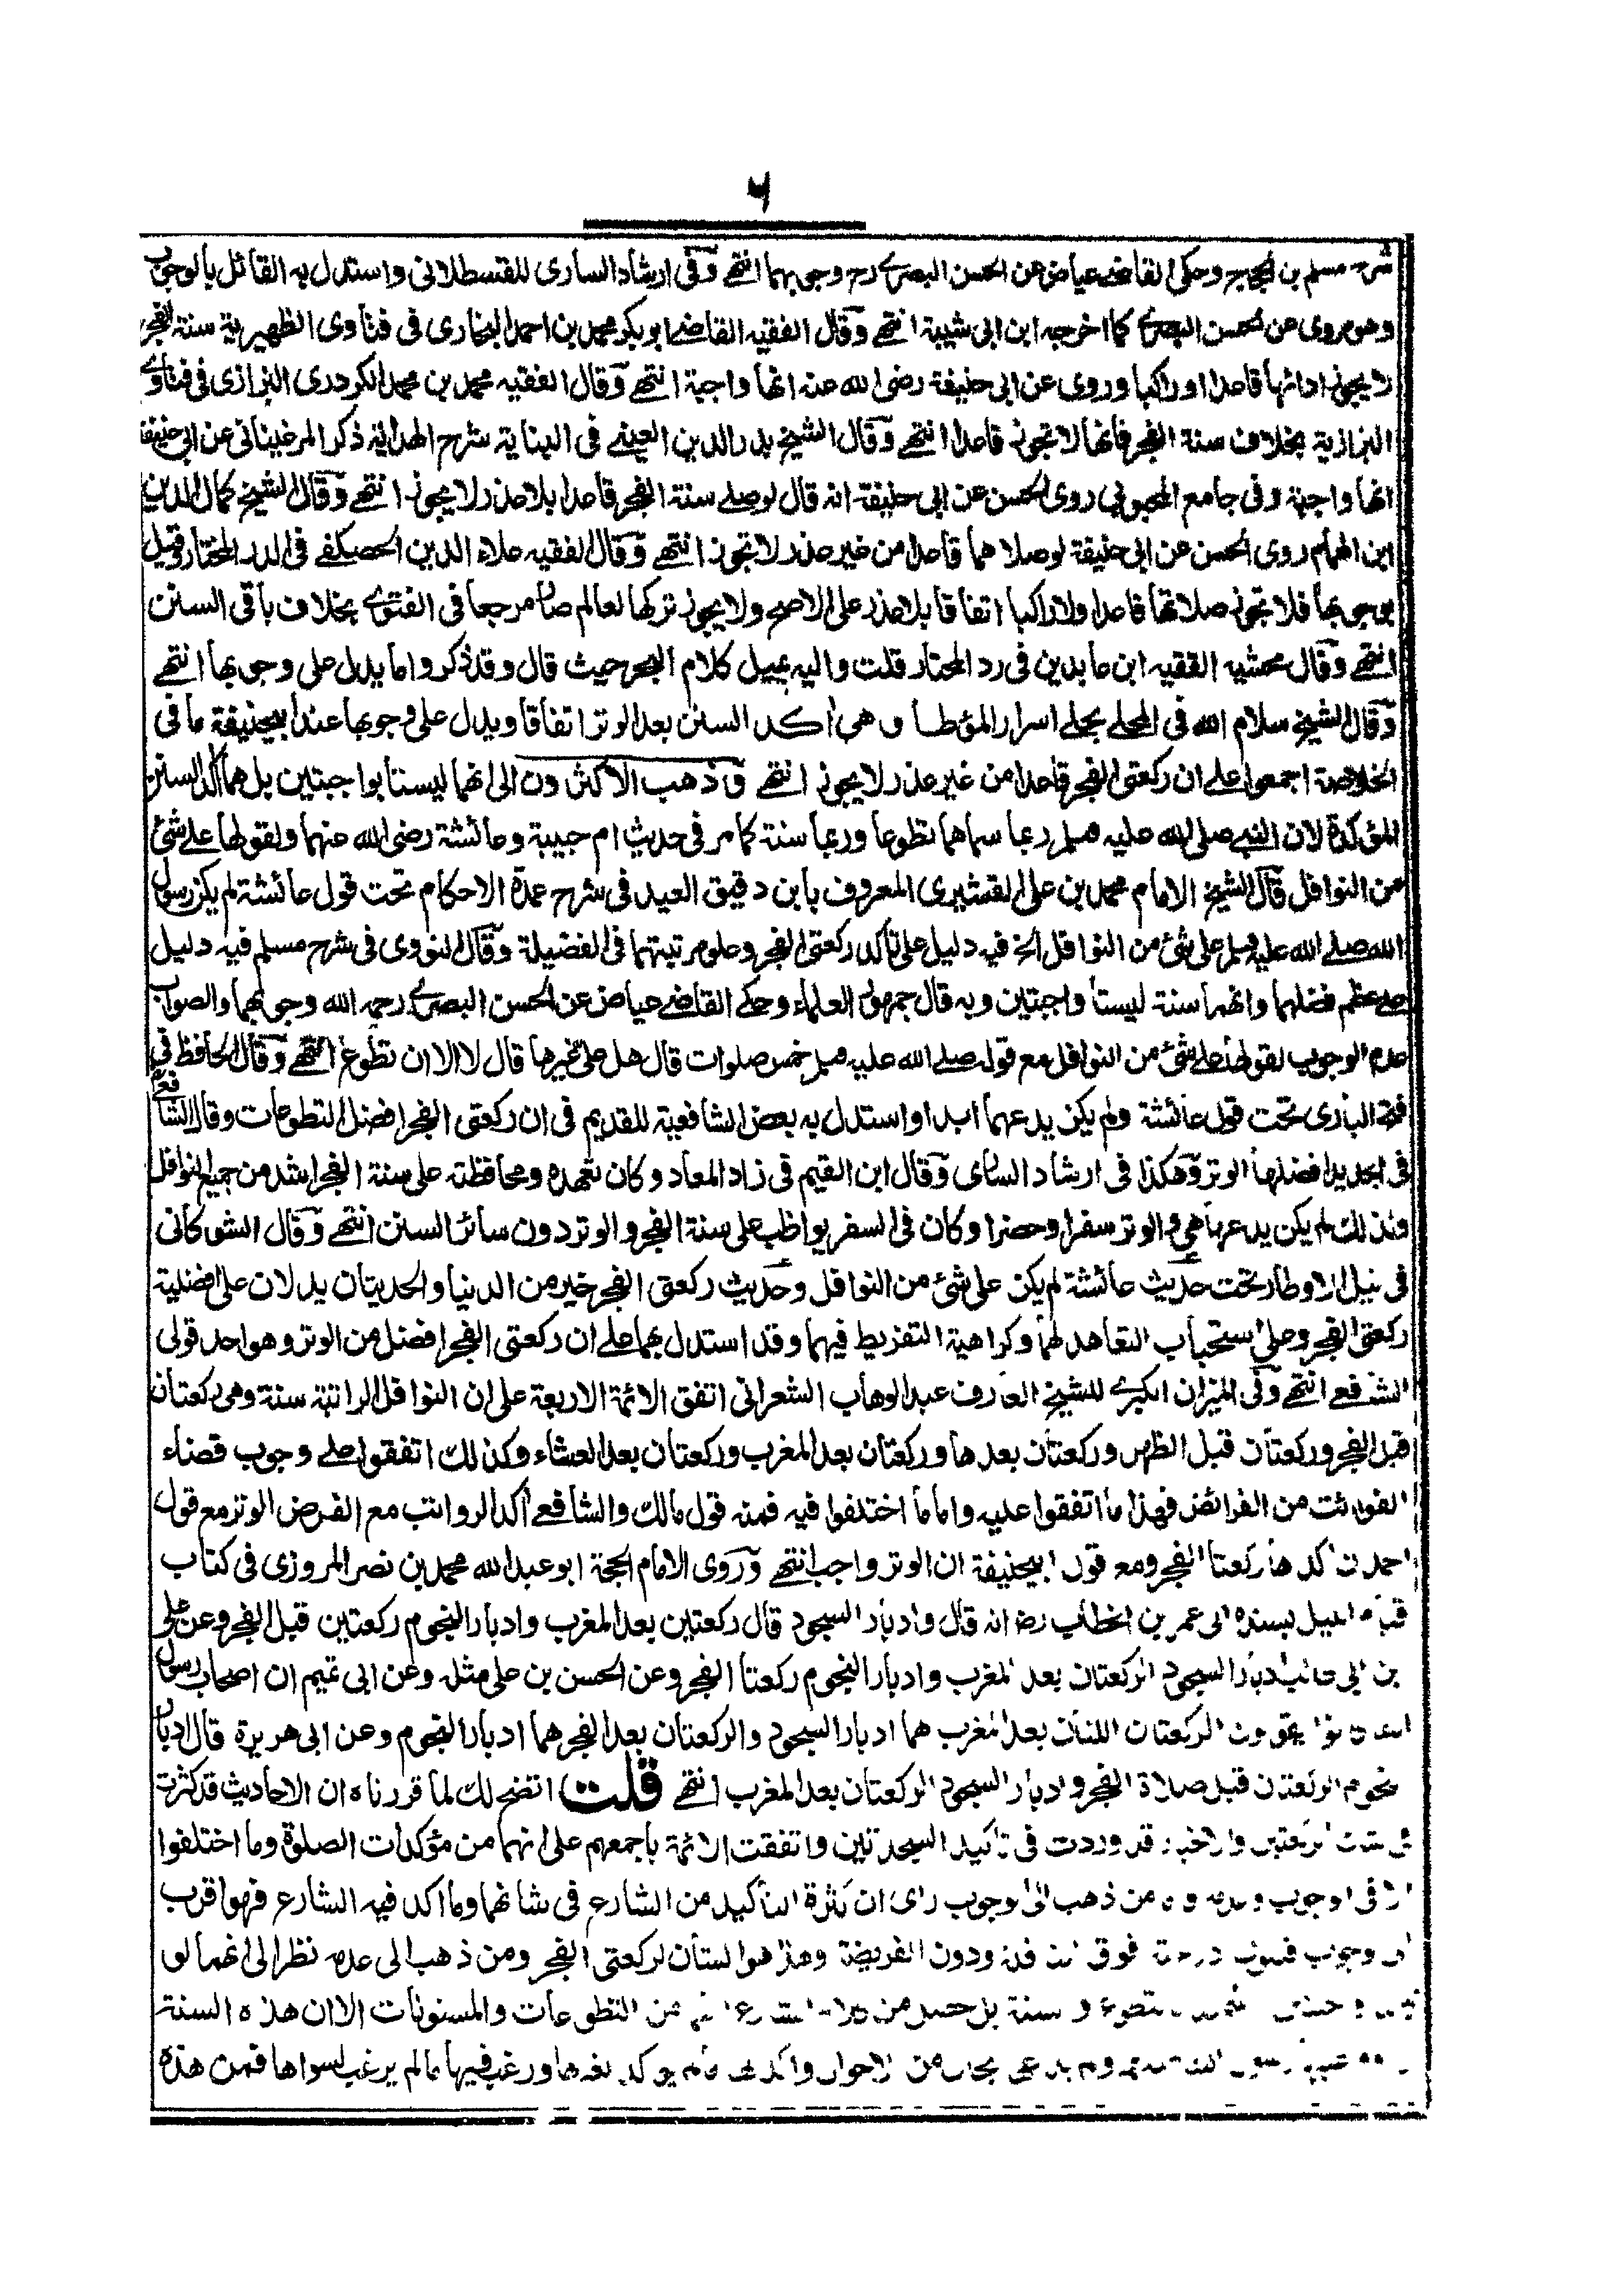 ٦
شرح مسلم بن الحجاج وحكى القاضے عياض عن الحسن البصرے رح وجوبهما انتهے وفى ارشاد السارى للقسطلانى واستدل به القائل بالوجوب
وهو مروى عن الحسن البصرے كما اخرجه ابن ابى شيبة انتهے وقال الفقيه القاضے ابو بكر محمد بن احمد البخارى فى فتاوى الظهيرية سنة الفجر
لا يجوز ادائها قاعدا او راكبا وروى عن ابى حنيفة رضى الله عنه انها واجبة انتهے وقال الفقيه محمد بن محمد الكردرى البزازى فى فتاوے
البزازية بخلاف سنة الفجر فانها لا تجوز قاعدا انتهے وقال الشيخ بدر الدين العينے فى البناية شرح الهداية ذكر المرغينانى عن ابى حنيفة
انها واجبة وفى جامع المحبوبى روى الحسن عن ابى حنيفة انه قال لو صلے سنة الفجر قاعدا بلا عذر لا يجوز انتهے وقال الشيخ كمال الدين
ابن الهمام روى الحسن عن ابى حنيفة لو صلاهما قاعدا من غير عذر لا تجوز انتهے وقال الفقيه علاء الدين الحصكفے فى الدر المختار وقيل
بوجوبها فلا تجوز صلاتها قاعدا ولا راكبا اتفاقا بلا عذر على الاصح ولا يجوز تركها لعالم صار مرجعا فى الفتوے بخلاف باقى السنن
انتهے وقال محشيه الفقيه ابن عابدين فى رد المحتار قلت واليه يميل كلام البحر حيث قال وقد ذكروا ما يدل على وجوبها انتهے
وقال الشيخ سلام الله فى المحلے بحلے اسرار المؤطا وهى اكد السنن بعد الوتر اتفاقا ويدل على وجوبها عند ابيحنيفة ما فى
الخلاصة اجمعوا علے ان ركعتى الفجر قاعدا من غير عذر لا يجوز انتهے وذهب الاكثرون الى انهما ليستا بواجبتين بل هما اكد السنن
المؤكدة لان النبے صلى الله عليه وسلم ربما سماهما تطوعا وربما سنة كما مر فى حديث ام حبيبة وعائشة رضى الله عنهما ولقولها علے شئ
من النوافل قال الشيخ الامام محمد بن على القشيرى المعروف بابن دقيق العيد فى شرح عمدة الاحكام تحت قول عائشة لم يكن رسول
الله صلے الله عليه وسلم على شئ من النوافل الخ فيه دليل على تاكد ركعتى الفجر وعلو مرتبتهما فى الفضيلة وقال النووى فى شرح مسلم فيه دليل
علے عظم فضلهما وانهما سنة ليستا واجبتين وبه قال جمهور العلماء وحكے القاضے عياض عن الحسن البصرے رحمه الله وجوبهما والصواب
عدم الوجوب لقولها علے شئ من النوافل مع قوله صلے الله عليه وسلم خمس صلوات قال هل علي غيرها قال لا الا ان تطوع انتهے وقال الحافظ فى
فتح البارى تحت قول عائشة ولم يكن يدعهما ابدا واستدل به بعض الشافعية للقديم فى ان ركعتى الفجر افضل التطوعات وقال الشافعے
فى الجديد افضلها الوتر وهكذا فى ارشاد السارى وقال ابن القيم فى زاد المعاد وكان تعهده ومحافظته على سنة الفجر اشد من جميع النوافل
ولذلك لم يكن يدعها هى والوتر سفرا وحضرا وكان فى السفر يواظب على سنة الفجر والوتر دون سائر السنن انتهے وقال الشوكانى
فى نيل الاوطار تحت حديث عائشة لم يكن على شئ من النوافل وحديث ركعتى الفجر خير من الدنيا والحديثان يدلان على افضلية
ركعتى الفجر وعلى استحباب التعاهد لهما وكراهية التفريط فيهما وقد استدل بهما علے ان ركعتى الفجر افضل من الوتر وهو احد قولى
الشافعے انتهے وفى الميزان الكبرے للشيخ العارف عبد الوهاب الشعرانى اتفق الائمة الاربعة على ان النوافل الراتبة سنة وهى ركعتان
قبل الفجر وركعتان قبل الظهر وركعتان بعدها وركعتان بعد المغرب وركعتان بعد العشاء وكذلك اتفقوا علے وجوب قضاء
الفوائت من الفرائض فهذا ما اتفقوا عليه واما ما اختلفوا فيه فمنه قول مالك والشافعے اكد الرواتب مع الفرض الوتر مع قول
احمد ان اكدها ركعتا الفجر ومع قول ابيحنيفة ان الوتر واجب انتهے وروى الامام الحجة ابو عبد الله محمد بن نصر المروزى فى كتاب
قيام الليل بسنده الى عمر بن الخطاب رضـ انه قال وادبار السجود قال ركعتين بعد المغرب وادبار النجوم ركعتين قبل الفجر وعن على
بن ابى طالب ادبار السجود الركعتان بعد المغرب وادبار النجوم ركعتا الفجر وعن الحسن بن على مثله وعن ابى تميم ان اصحاب رسول
الله كانوا يقولون الركعتان اللتان بعد المغرب هما ادبار السجود والركعتان بعد الفجر هما ادبار النجوم وعن ابى هريرة قال ادبار
النجوم الركعتان قبل صلاة الفجر وادبار السجود الركعتان بعد المغرب انتهے قلت اتضح لك لما قررناه ان الاحاديث قد كثرت
الركعتين والاخبار قد وردت فى تاكيد السجدتين واتفقت الائمة باجمعهم على انهما من مؤكدات الصلوة وما اختلفوا
الا فى الوجوب وعدمه من ذهب الى الوجوب راى ان كثرة التاكيد من الشارع فى شانهما وما اكد فيه الشارع فهو اقرب
الى وجوب فوق ودون الفريضة وهذا هو الشان لركعتى الفجر ومن ذهب الى عدمه نظر الى انهما لو
سنة بل حصل من من التطوعات والمسنونات الا ان هذه السنة
بحال من الاحوال واكد ما لم يوكد لغيرها ورغب فيها ما لم يرغب لسواها فمن هذه